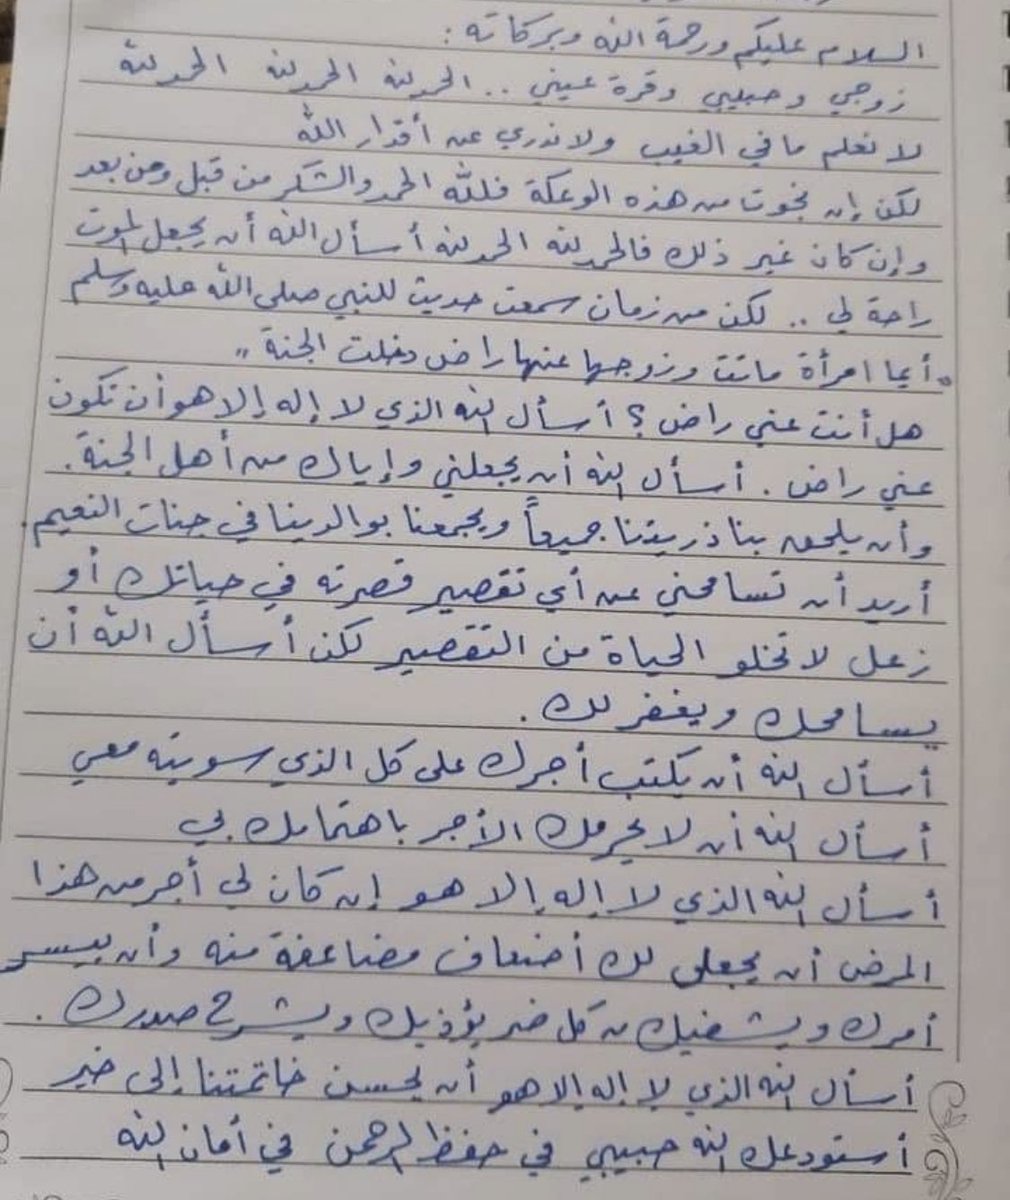 السلام عليكم ورحمة الله وبركاته :
زوجي وحبيبي وقرة عيني .. الحمد لله الحمد لله الحمد لله
لا نعلم ما في الغيب ولا ندري عن أقدار الله
لكن إن نجوت من هذه الوعكة فلله الحمد والشكر من قبل ومن بعد
وإن كان غير ذلك فالحمد لله الحمد لله أسأل الله أن يجعل الموت
راحة لي .. لكن من زمان سمعت حديث للنبي صلى الله عليه وسلم
"أيما امرأة ماتت وزوجها عنها راض دخلت الجنة"
هل أنت عني راض ؟ أسأل الله الذي لا إله إلا هو أن تكون
عني راض . أسأل الله أن يجعلني وإياك من أهل الجنة .
وأن يلحق بنا ذريتنا جميعاً ويجمعنا بوالدينا في جنات النعيم .
أريد أن تسامحني عن أي تقصير قصرته في حياتك أو
زعل لا تخلو الحياة من التقصير لكن أسأل الله أن
يسامحك ويغفر لك .
أسأل الله أن يكتب أجرك على كل الذي سويته معي
أسأل الله أن لا يحرمك الأجر باهتمامك بي
أسأل الله الذي لا إله إلا هو إن كان لي أجر من هذا
المرض أن يجعل لك أضعاف مضاعفة منه وأن ييسر
أمرك ويشفيك من كل ضر يؤذيك ويشرح صدرك .
أسأل الله الذي لا إله إلا هو أن يحسن خاتمتنا إلى خير
أستودعك الله حبيبي في حفظ الرحمن في أمان الله